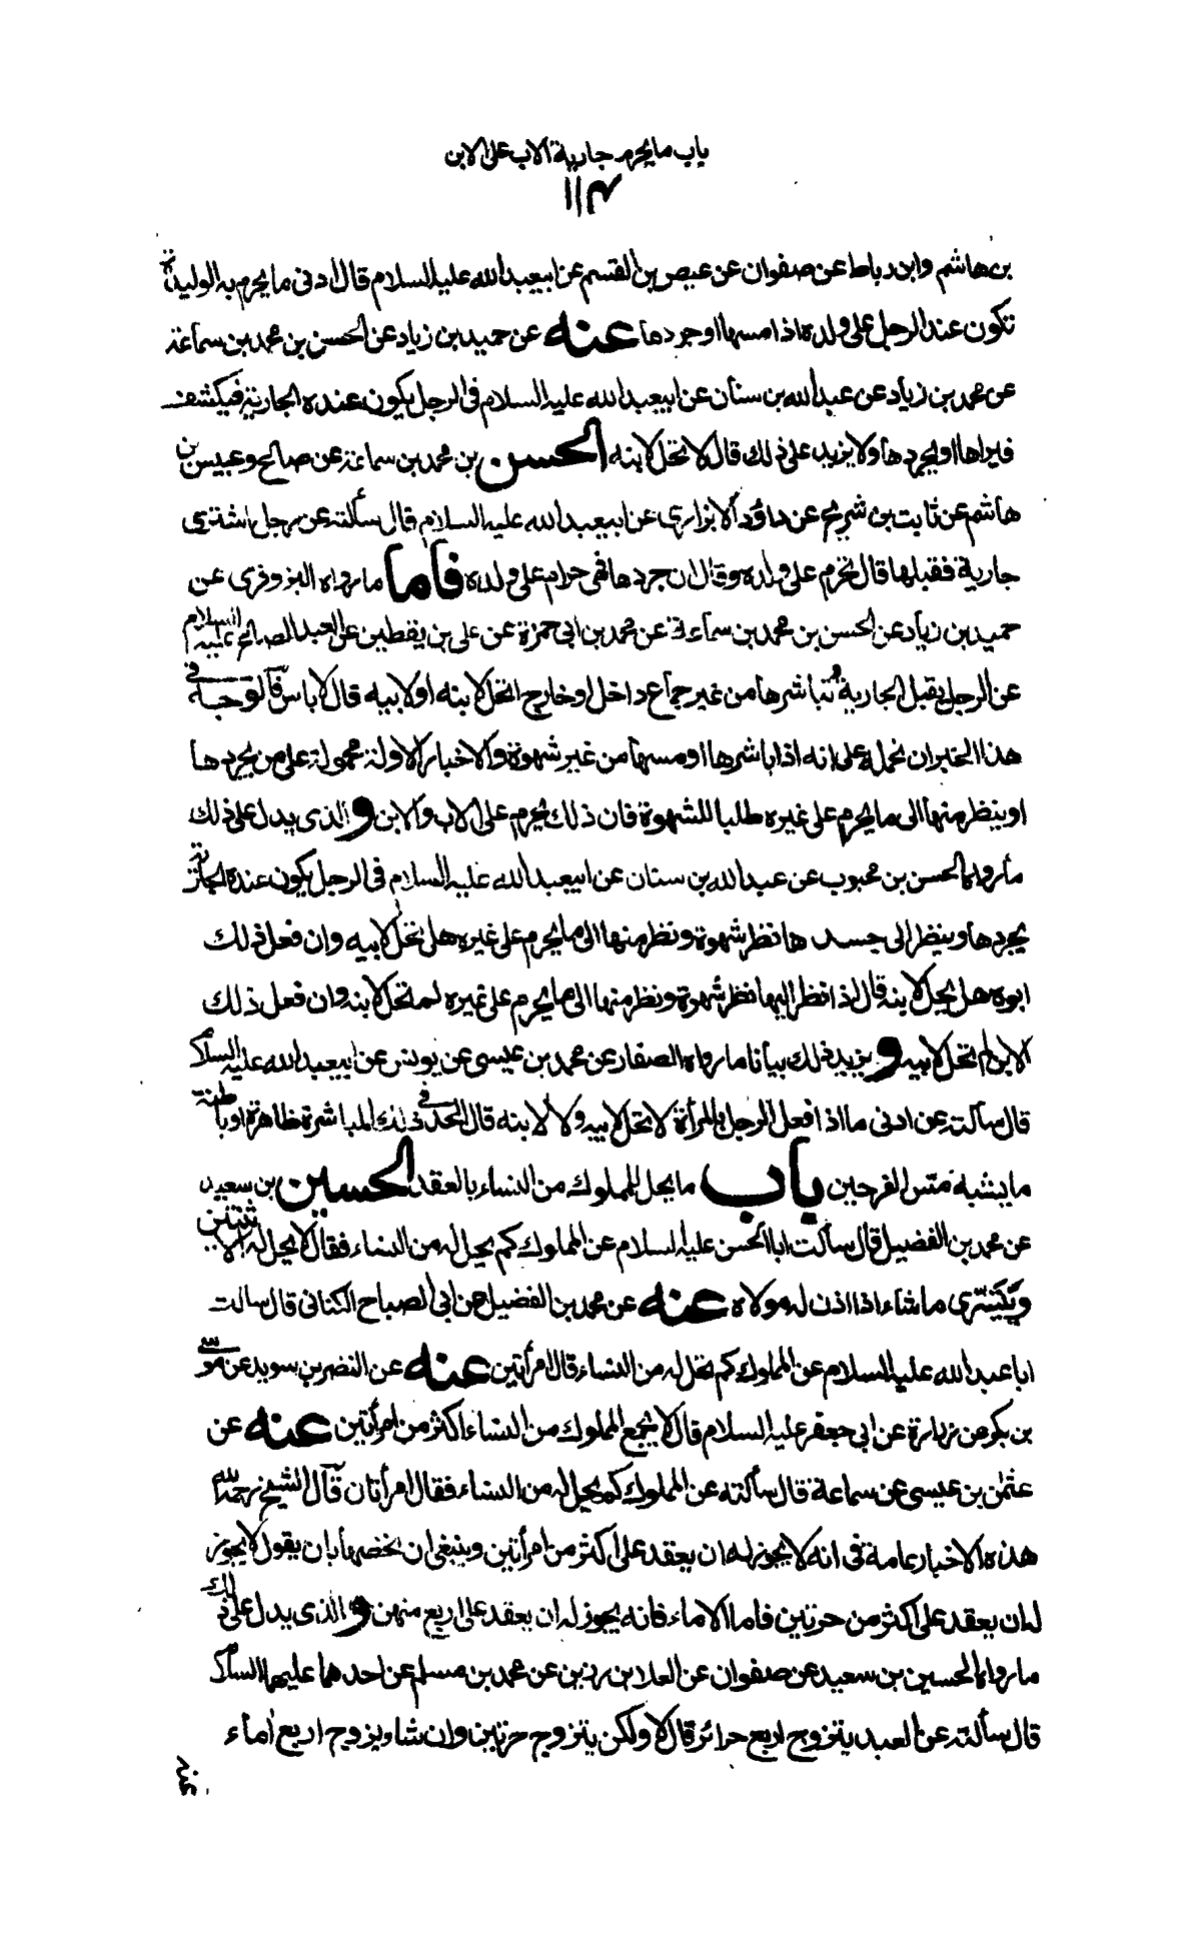 باب ما يحرم جارية الاب على الابن
١١٣
بن هاشم وابن رباط عن صفوان عن عيص بن القسم عن ابيعبد الله عليه السلام قال ادنى ما يحرم به الوليدة
تكون عند الرجل على ولده اذا مسها او جردها عنه عن حميد بن زياد عن الحسن بن محمد بن سماعة
عن محمد بن زياد عن عبد الله بن سنان عن ابيعبد الله عليه السلام فى الرجل يكون عنده الجارية فيكشف
فيراها او يجردها ولا يزيد على ذلك قال لا تحل لابنه الحسن بن محمد بن سماعة عن صالح وعبيس بن
هاشم عن ثابت بن شريح عن داؤد الابزارى عن ابيعبد الله عليه السلام قال سألته عن رجل اشترى
جارية فقبلها قال تحرم على ولده وقال ان جردها فهى حرام على ولده فاما ما رواه البزوفرى عن
حميد بن زياد عن الحسن بن محمد بن سماعة عن محمد بن ابى حمزة عن على بن يقطين عن العبد الصالح عليه السلام
عن الرجل يقبل الجارية وتباشرها من غير جماع داخل او خارج اتحل لابنه او لابيه قال لا باس فالوجه فى
هذا الخبر ان نحمله على انه اذا باشرها او مسها من غير شهوة والاخبار الاولة محمولة على من يجردها
او ينظر منها الى ما يحرم على غيره طلبا للشهوة فان ذلك يحرم على الاب والابن و الذى يدل على ذلك
ما رواه الحسن بن محبوب عن عبد الله بن سنان عن ابيعبد الله عليه السلام فى الرجل يكون عنده الجارية
يجردها وينظر الى جسدها نظر شهوة ونظر منها الى ما يحرم على غيره هل تحل لابيه وان فعل ذلك
ابوه هل يحل لابنه قال اذا نظر اليها نظر شهوة ونظر منها الى ما يحرم على غيره لم تحل لابنه وان فعل ذلك
الابن لم تحل لابيه و يزيد ذلك بيانا ما رواه الصفار عن محمد بن عيسى عن يونس عن ابيعبد الله عليه السلام
قال سألته عن ادنى ما اذا فعل الرجل بالمرأة لا تحل لابيه ولا لابنه قال الحد فى ذلك المباشرة ظاهرة او باطنة
ما يشبه مس الفرجين باب ما يحل للمملوك من النساء بالعقد الحسين بن سعيد
عن محمد بن الفضيل قال سألت ابا الحسن عليه السلام عن المملوك كم يحل له من النساء فقال لا يحل له الا ثنتين
ويتسرى ما شاء اذا اذن له مولاه عنه عن محمد بن الفضيل عن ابى الصباح الكنانى قال سالت
ابا عبد الله عليه السلام عن المملوك كم تحل له من النساء قال امرأتين عنه عن النضر بن سويد عن موسى
بن بكر عن زرارة عن ابى جعفر عليه السلام قال لا يجمع المملوك من النساء اكثر من امرأتين عنه عن
عثمن بن عيسى عن سماعة قال سألته عن المملوك كم يحل له من النساء فقال امرأتان قال الشيخ رحمه الله
هذه الاخبار عامة فى انه لا يجوز له ان يعقد على اكثر من امرأتين وينبغى ان نخصها بان يقول لا يجوز
له ان يعقد على اكثر من حرتين فاما الاماء فانه يجوز له ان يعقد على اربع منهن و الذى يدل على ذلك
ما رواه الحسين بن سعيد عن صفوان عن العلا بن رزين عن محمد بن مسلم عن احدهما عليهما السلام
قال سألته عن العبد يتزوج اربع حرائر قال لا ولكن يتزوج حرتين وان شاء يزوج اربع اماء
عنه